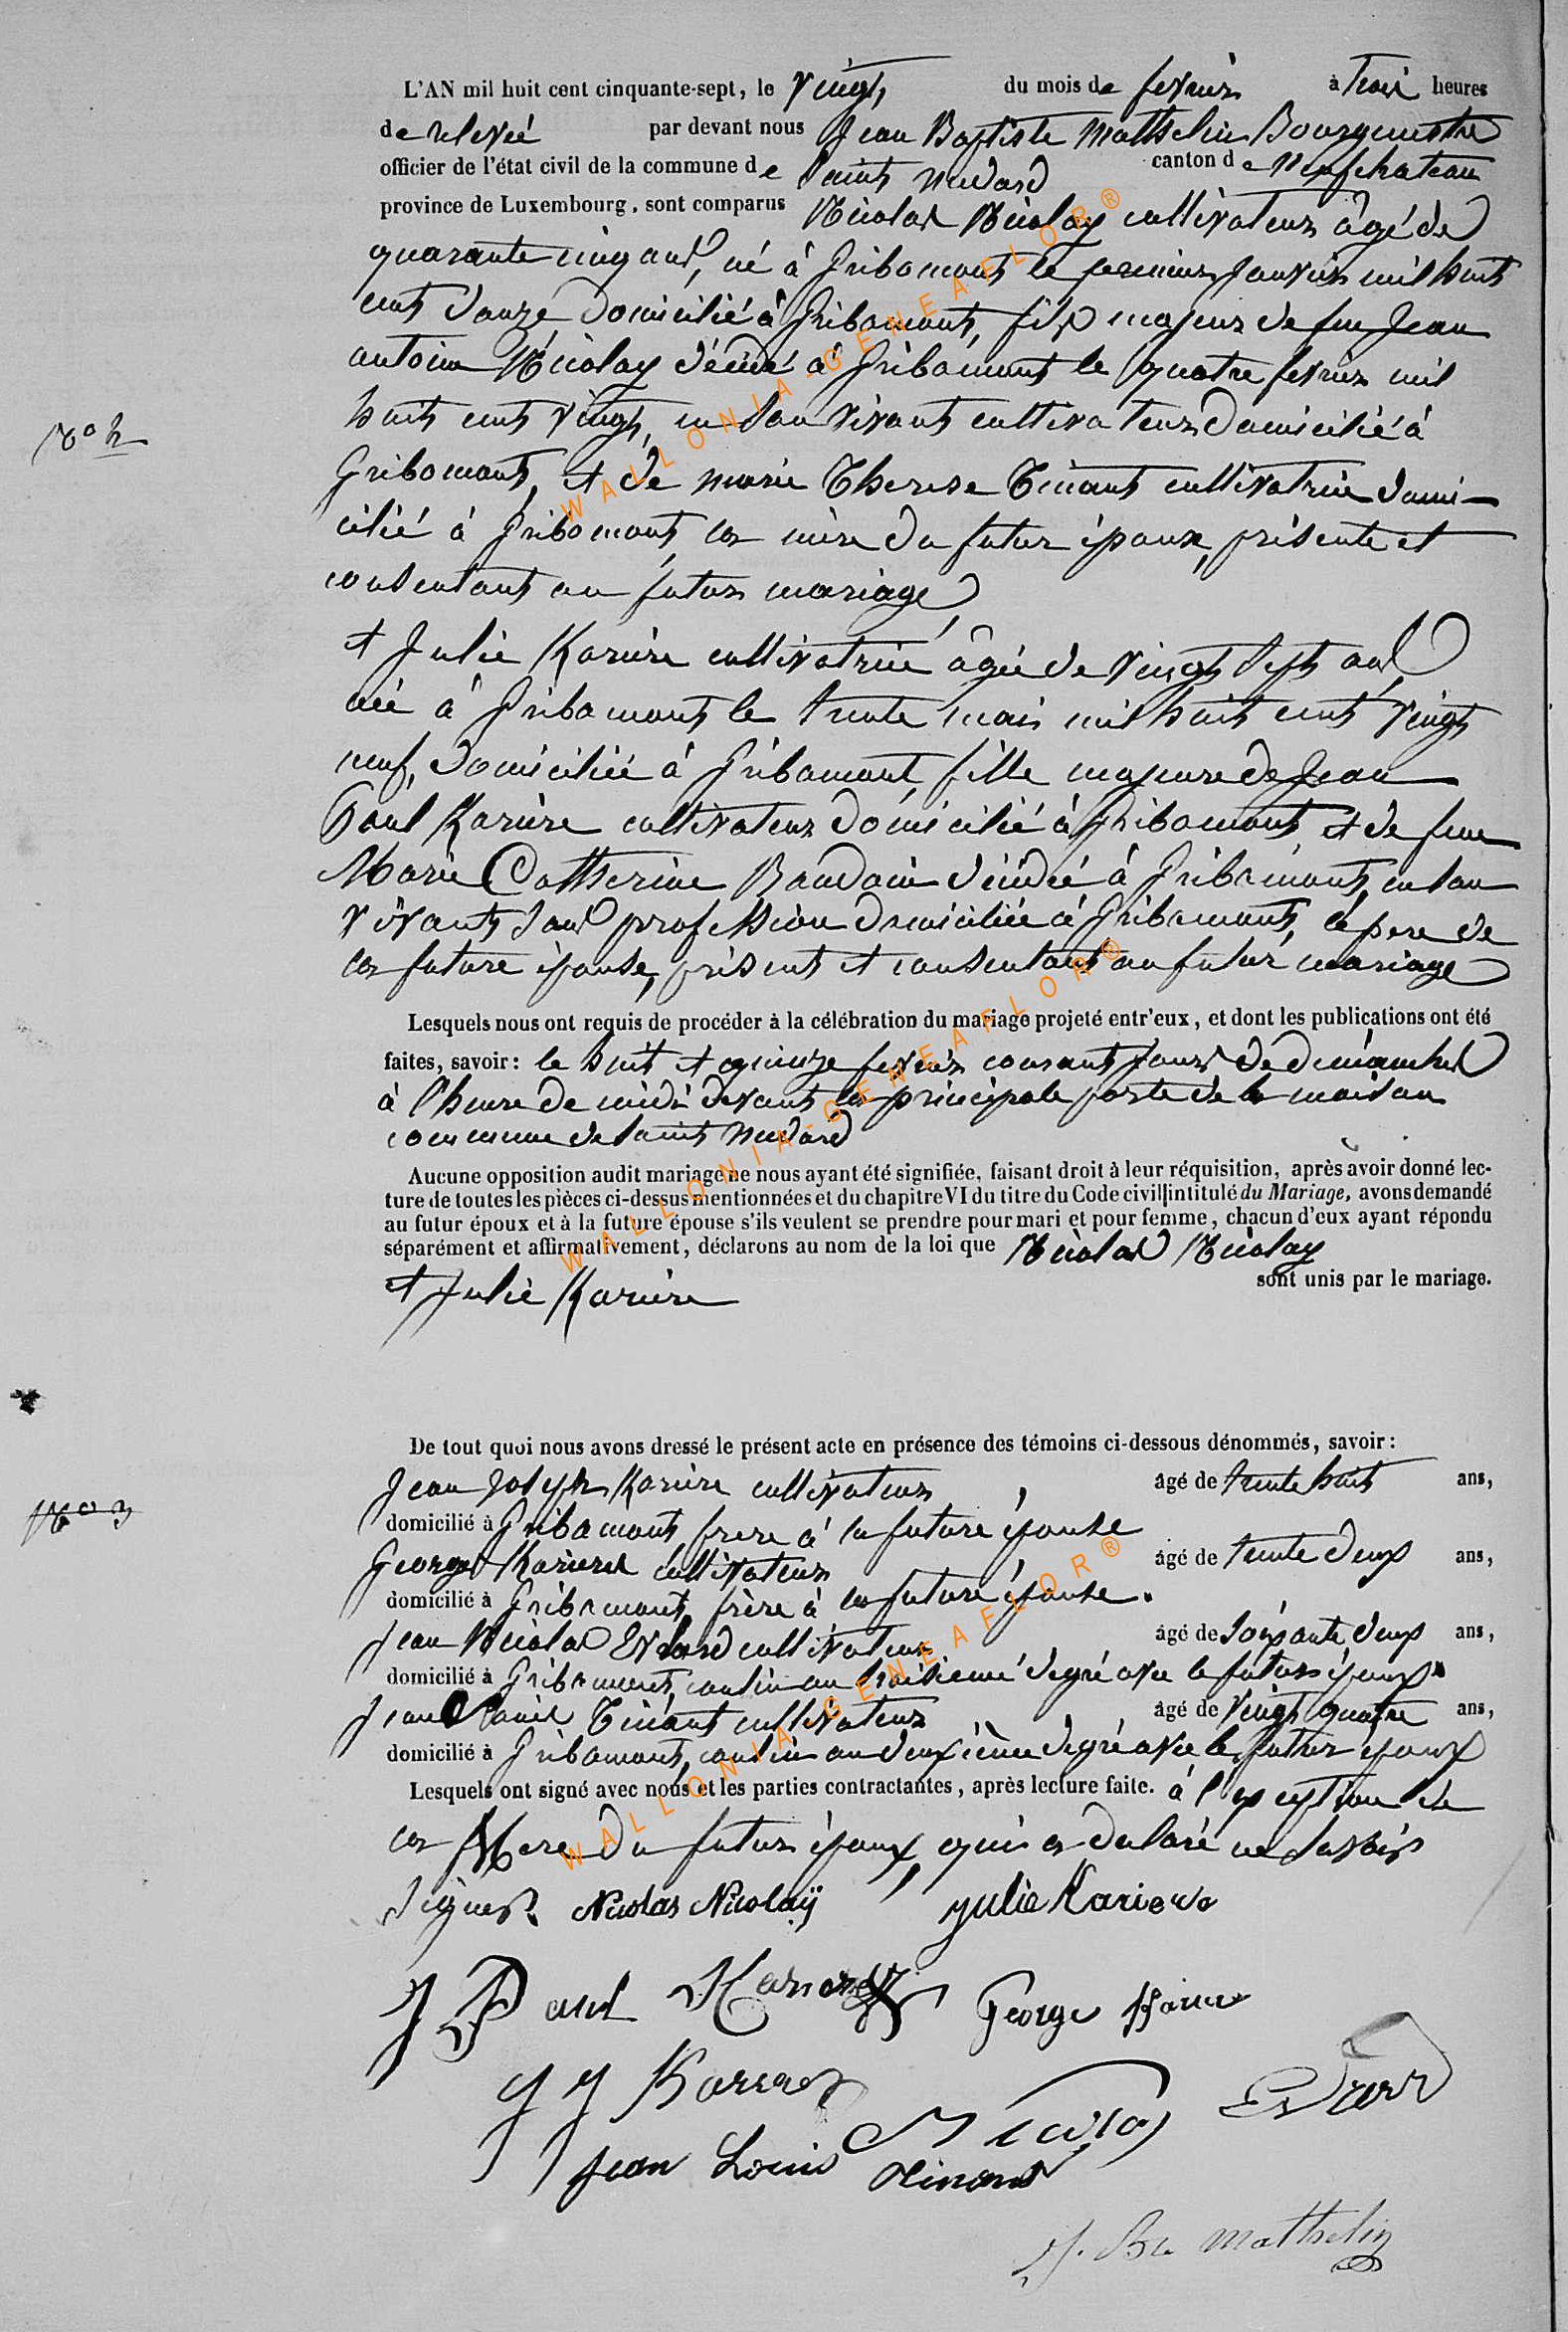 L'AN mil huit cent cinquante-sept, le vingt du mois de fevrier à trois heures
de relevée par devant nous Jean Baptiste Mathelin Bourgmestre
officier de l'état civil de la commune de Saint Medard canton de Neufchateau
province de Luxembourg, sont comparus Nicolas Nicolay cultivateur âgé de
quarante cinq ans, né à Gribomont le premier janvier mil huit
cent douze domicilié à Gribomont, fils majeur de feu Jean
antoine Nicolay décédé à Gribomont le quatre fevrier mil
huit cent vingt, en son vivant cultivateur domicilié à
Gribomont, et de marie Therese Tinant cultivatrice domi-
cilié à Gribomont, la mère du futur époux, présente et
consentant au futur mariage
N° 2
et Julie Karière cultivatrice âgée de vingt sept ans
née à Gribomont le trente mai mil huit cent vingt
neuf, domiciliée à Gribomont, fille majeure de Jean
Paul Karière cultivateur domicilié à Gribomont, et de feue
Marie Catherine Baudoin décédée à Gribomont, en son
vivant sans profession domiciliée à Gribomont, le pere de
la future épouse, présent et consentant au futur mariage
Lesquels nous ont requis de procéder à la célébration du mariage projeté entr'eux, et dont les publications ont été
faites, savoir: le huit et quinze fevrier courant jours de dimanches
à l'heure de midi devant la principale porte de la maison
commune de Saint Medard
Aucune opposition audit mariage ne nous ayant été signifiée, faisant droit à leur réquisition, après avoir donné lec-
ture de toutes les pièces ci-dessus mentionnées et du chapitre VI du titre du Code civil intitulé du Mariage, avons demandé
au futur époux et à la future épouse s'ils veulent se prendre pour mari et pour femme, chacun d'eux ayant répondu
séparément et affirmativement, déclarons au nom de la loi que Nicolas Nicolay
et Julie Karière sont unis par le mariage.
De tout quoi nous avons dressé le présent acte en présence des témoins ci-dessous dénommés, savoir:
Jean Joseph Karière cultivateur, âgé de trente huit ans,
domicilié à Gribomont, frere à la future épouse
N° 3
George Karière cultivateur, âgé de trente deux ans,
domicilié à Gribomont, frère à la future épouse.
Jean Nicolas Evrard cultivateur âgé de soixante deux ans,
domicilié à Gribomont, cousin au troisieme degré avec le futur époux
Jean Louis Tinant cultivateur âgé de vingt quatre ans,
domicilié à Gribomont, cousin au deuxième degré avec le futur époux
Lesquels ont signé avec nous et les parties contractantes, après lecture faite. à l'exception de
la Mere du futur époux, qui a declaré ne savoir
signer. Nicolas Nicolaÿ Julie Kariere
J Paul George
J J Nicolas Evrard
Jean Louis Tinant
J. Bte Mathelin
WALLONIA-GENEAFLOR®
WALLONIA-GENEAFLOR®
WALLONIA-GENEAFLOR®